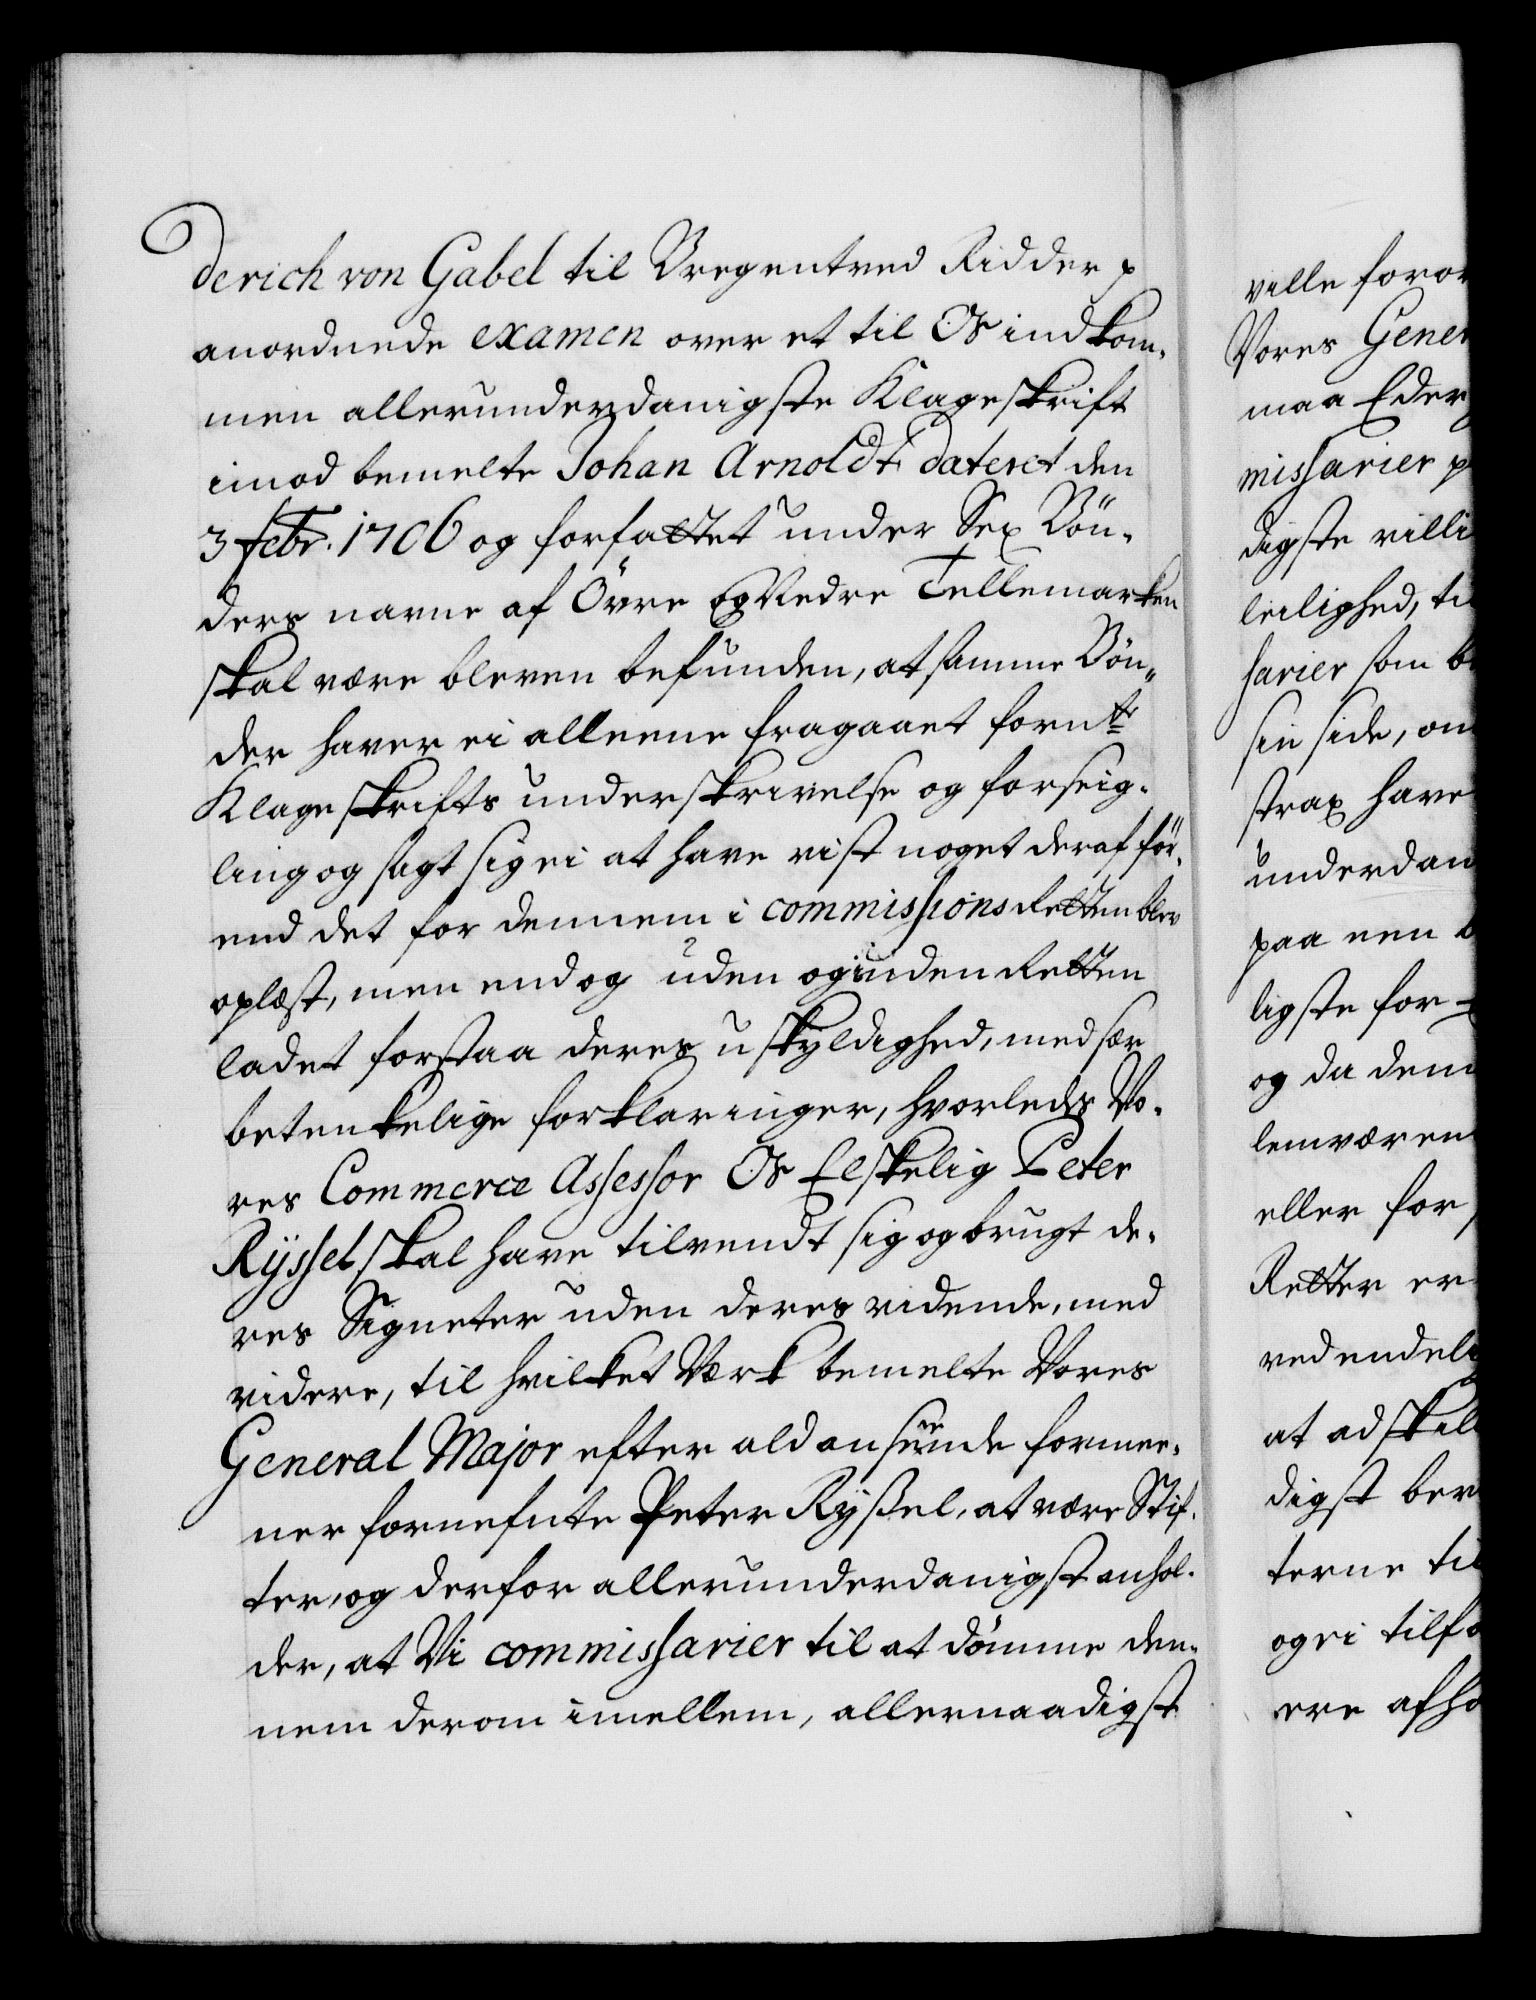 derich von Gabel til Bregentved Ridder p
anordnede examen over et til Os indkom-
men allerunderdanigste Klageskrift
imod bemelte Johan Arnoldt dateret den
3 Febr. 1706 og forfattet under Sex Bön-
ders navne af Övre og Nedre Tellemarken
skal være bleven befunden, at samme Bön-
der haver ei alleene fragaaet fornte
Klageskrifts underskrivelse og forseig-
ling og sagt sig ei at have vist noget deraf för-
end det for dennem i commissions Retten blev
oplæst, men endog uden og inden Retten
ladet forstaa deres uskyldighed, med sær
betenkelige forklaringer, hvorledes Vo-
res Commerce Assessor Os Elskelig Peter
Ryssel skal have tilvendt sig og brugt de-
res Signeter uden deres vidende, med
videre, til hvilket Værk bemelte Vores
General Major efter ald anseende formee-
ner fornefnte Peter Ryssel, at være Stif-
ter, og derfor allerunderdanigst anhol-
der, at Vi commissarier til at dömme den-
nem derom imellem, allernaadigst
ville foror
Vores Gener
maa Eder
missarier p
digste villi
leilighed, til
sarier som be
sin side, om
strax have
underdan
paa een b
ligste for-
og da dem
lemværen
eller for
Retter er
ved endeli
at adskill
digst ber
terne til
og ei tilfo
ere afho